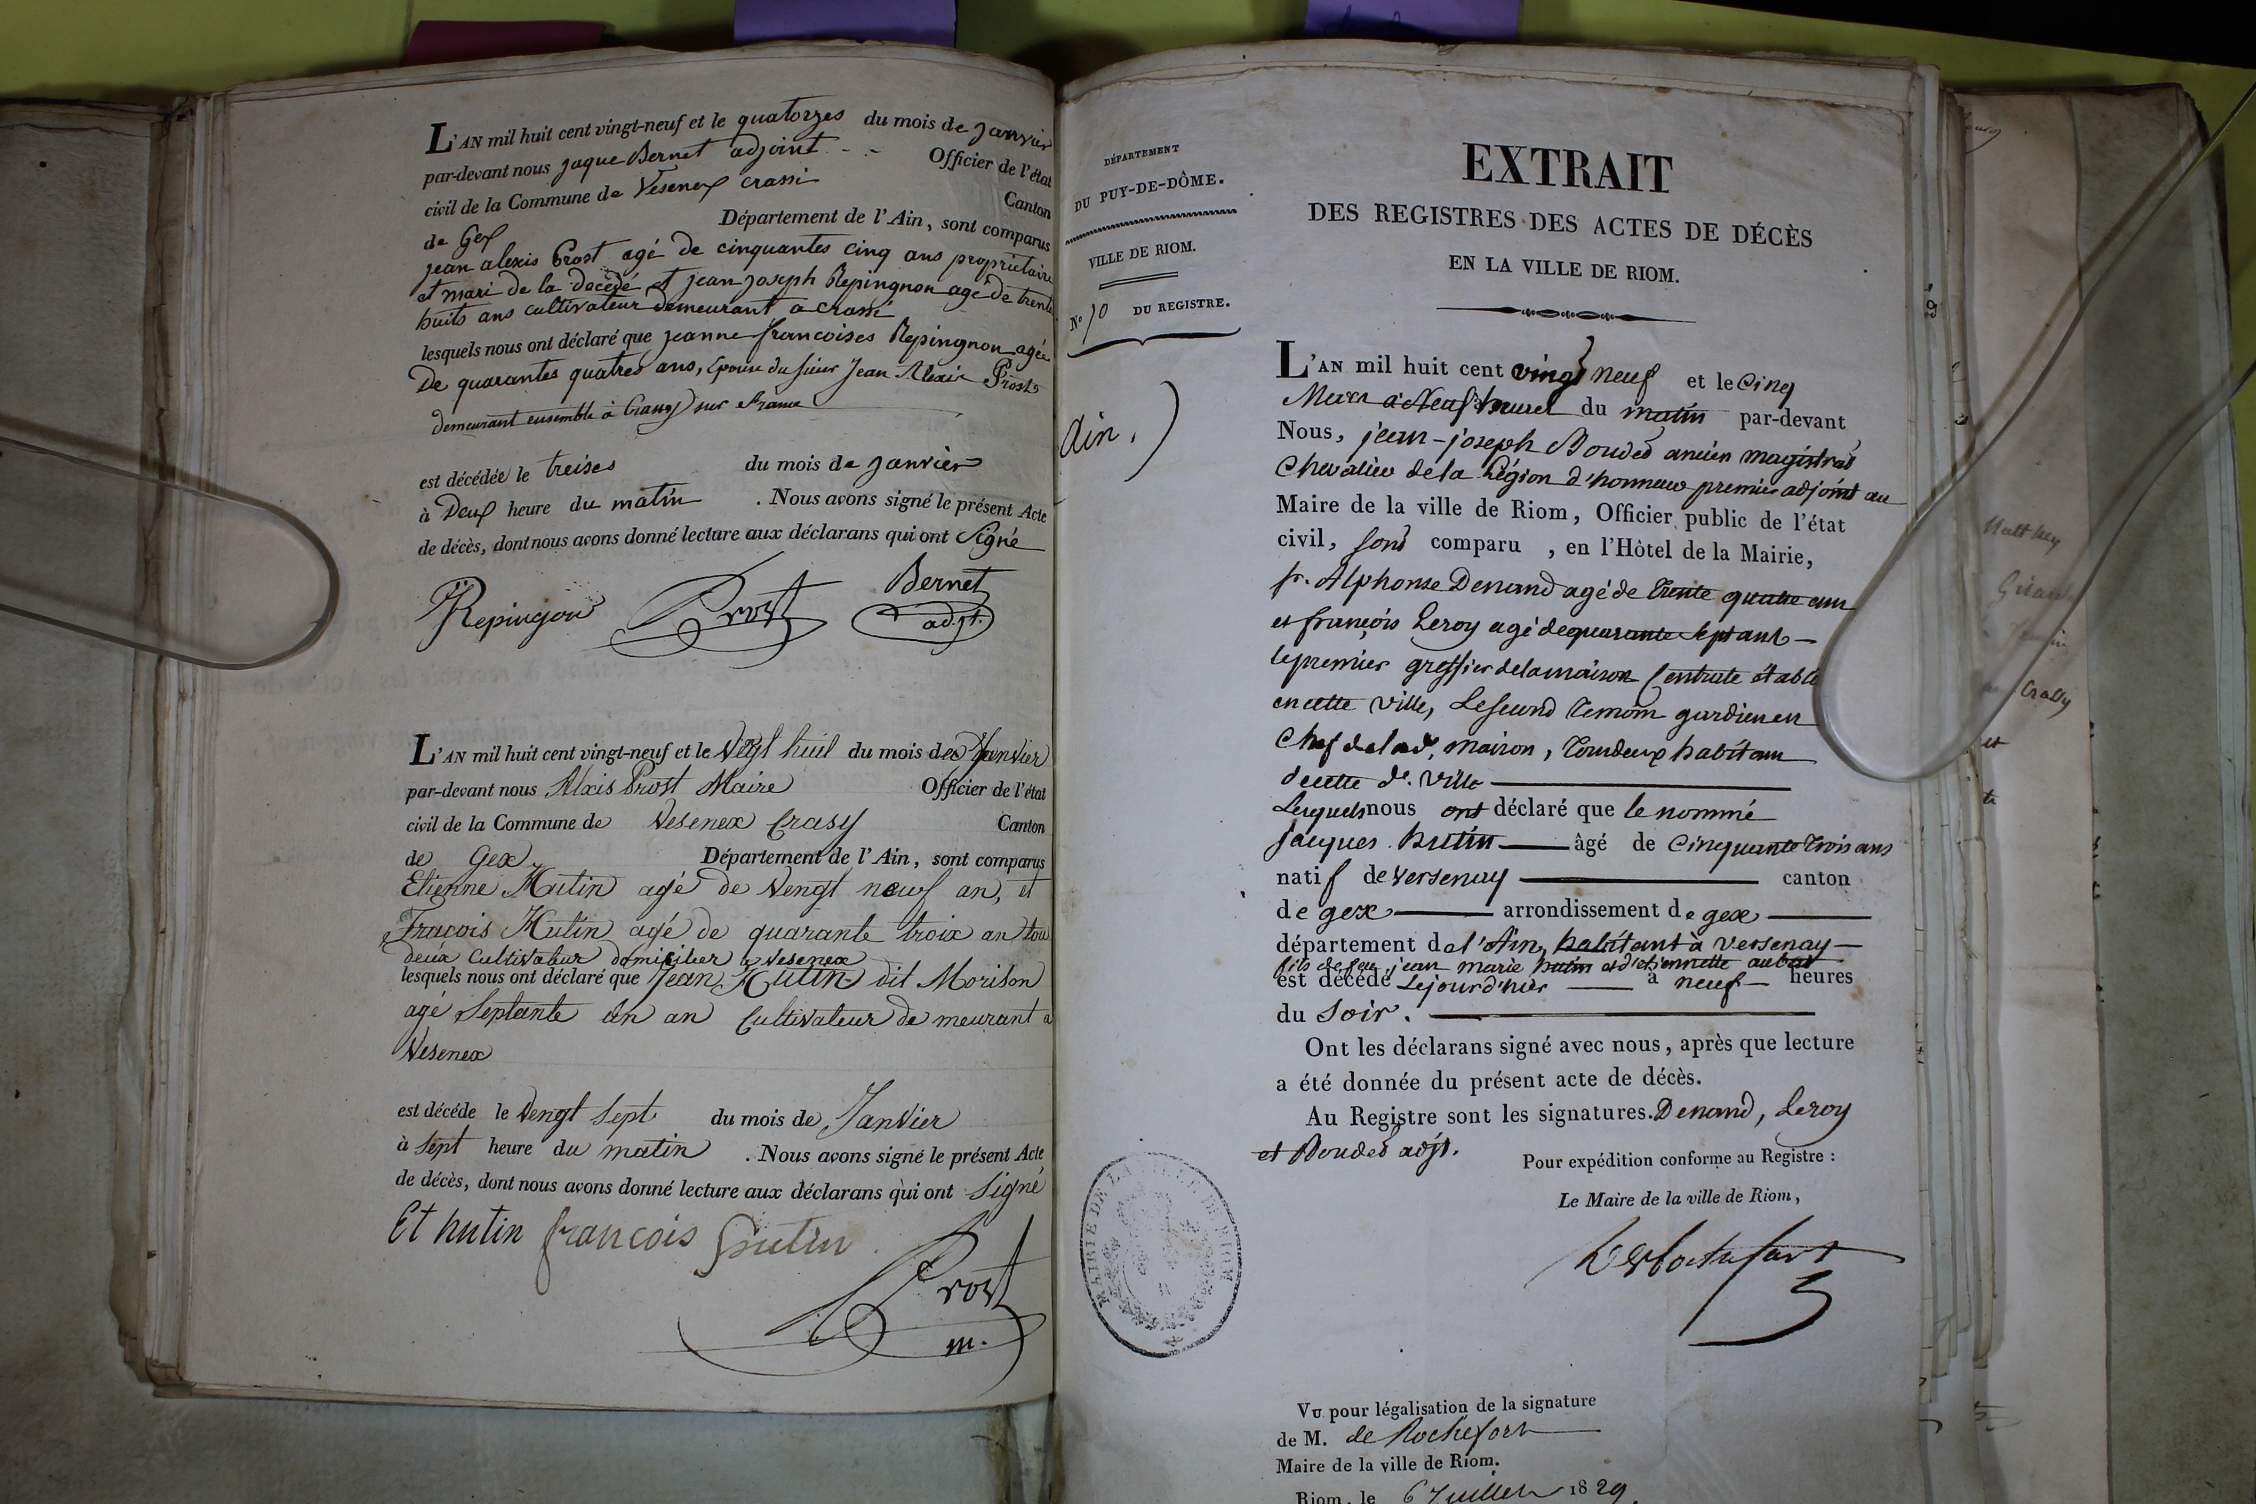 L'AN mil huit cent vingt-neuf et le quatorzes du mois de janvier
par-devant nous jaque Bernet adjoint - - Officier de l'état
civil de la Commune de Vesenex crassi Canton
de Gex Département de l'Ain, sont comparus
jean alexis Prost agé de cinquantes cinq ans proprietaire
et mari de la docédé et jean joseph Repingnon agé de trente
huits ans cultivateur demeurant a crassi
lesquels nous ont déclaré que jeanne francoises Repingnon agée
De quarantes quatres ans, Epouse du sieur Jean Alexis Prost
demeurant ensemble à Crassy sur france
est décédée le treises du mois de janvier
à Deux heure du matin . Nous avons signé le présent Acte
de décès, dont nous avons donné lecture aux déclarans qui ont signé
JRepingon Prost Bernet
adjt.
L'AN mil huit cent vingt-neuf et le Vegt huil du mois de Janvier
par-devant nous Alxis Prost Maire Officier de l'état
civil de la Commune de Vesenex Crasy Canton
de Gex Département de l'Ain, sont comparus
Etienne Hutin agé de Vengt neuf an, et
Fracois Hutin agé de quarante troix an tou
deux Cultivateur domicilier a Vesenex
lesquels nous ont déclaré que Jean Hutin dit Morison
agé Septante un an Cultivateur de meurant a
Vesenex
est décéde le Vengt Sept du mois de Janvier
à Sept heure du matin . Nous avons signé le présent Acte
de décès, dont nous avons donné lecture aux déclarans qui ont Signé
Et hutin francois hutin
Prost
m.
DÉPARTEMENT
DU PUY-DE-DÔME.
VILLE DE RIOM.
N° 70 DU REGISTRE.
Ain.)
MAIRIE DE LA VILLE DE RIOM
EXTRAIT
DES REGISTRES DES ACTES DE DÉCÈS
EN LA VILLE DE RIOM.
L'AN mil huit cent vingt neuf et le Cinq
Mars à Neuf heures du matin par-devant
Nous, jean-joseph Boudet ancien magistrat
Chevalier de la Légion d'honneur premier adjoint au
Maire de la ville de Riom, Officier public de l'état
civil, sont comparu , en l'Hôtel de la Mairie,
sr. Alphonse Denand agé de trente quatre ans
et françois Leroy agé de quarante sept ans -
le premier greffier de la maison Centrale établi
en cette ville, Le second temoin gardien en
Chef de lad. maison, tous deux habitans
de cette de. ville
Lesquels nous ont déclaré que le nommé
jacques hutin âgé de cinquante trois ans
natif de versenay canton
de gex arrondissement de gex
département de l'Ain, habitant à versenay
fils de feu jean marie hutin et d'etiennette aubert
est décédé Le jour d'hier à neuf heures
du Soir.
Ont les déclarans signé avec nous, après que lecture
a été donnée du présent acte de décès.
Au Registre sont les signatures. Denand, Leroy
et Boudet adjt.
Pour expédition conforme au Registre :
Le Maire de la ville de Riom,
Vu pour légalisation de la signature
de M. de Rochefort
Maire de la ville de Riom.
Riom, le 6 Juillet 1829.